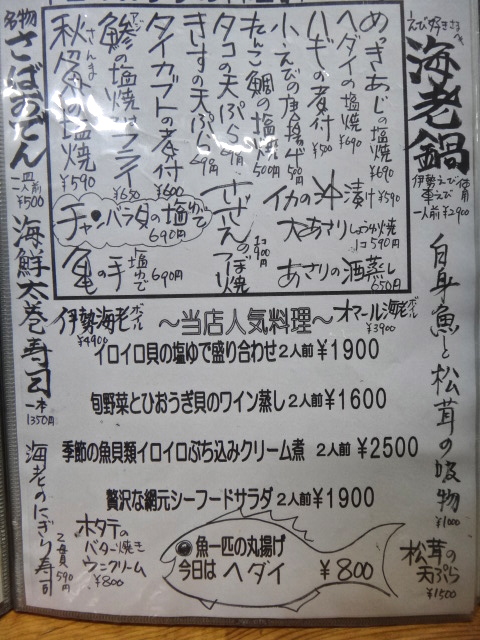 えび好きさんへ
海老鍋
伊勢えび
車えび
使用
一人前 ¥2900
めっきあじの塩焼 ¥690
ヘダイの塩焼 ¥690
ハギの煮付 ¥500
小えびの唐揚
れんこ鯛の塩焼 500円
タコの天ぷら 69円
きすの天ぷら
タイカブトの煮付 ¥600
鯵の塩焼 フライ ¥650
アジ
秋刀魚の塩焼 ¥590
さんま
イカの沖漬け ¥590
大あさりしょうゆ焼 1コ 590円
あさりの酒蒸し 650円
さざえのつぼ焼
チャンバラ貝の塩ゆで 690円
亀の手 塩ゆで 690円
名物
さばおでん
一皿 一人前 ¥500
海鮮太巻寿司
一本 1350円
海老のにぎり寿司
2貫 590円
白身魚と松茸の吸物
¥1000
松茸の天ぷら
¥1500
伊勢海老ボイル ¥4900
～当店人気料理～
オマール海老ボイル ¥3900
イロイロ貝の塩ゆで盛り合わせ 2人前 ¥1900
旬野菜とひおうぎ貝のワイン蒸し 2人前 ¥1600
季節の魚貝類イロイロぶち込みクリーム煮 2人前 ¥2500
贅沢な網元シーフードサラダ 2人前 ¥1900
ホタテの
バター焼き
ウニクリーム
¥800
魚一匹の丸揚げ
今日は ヘダイ ¥800